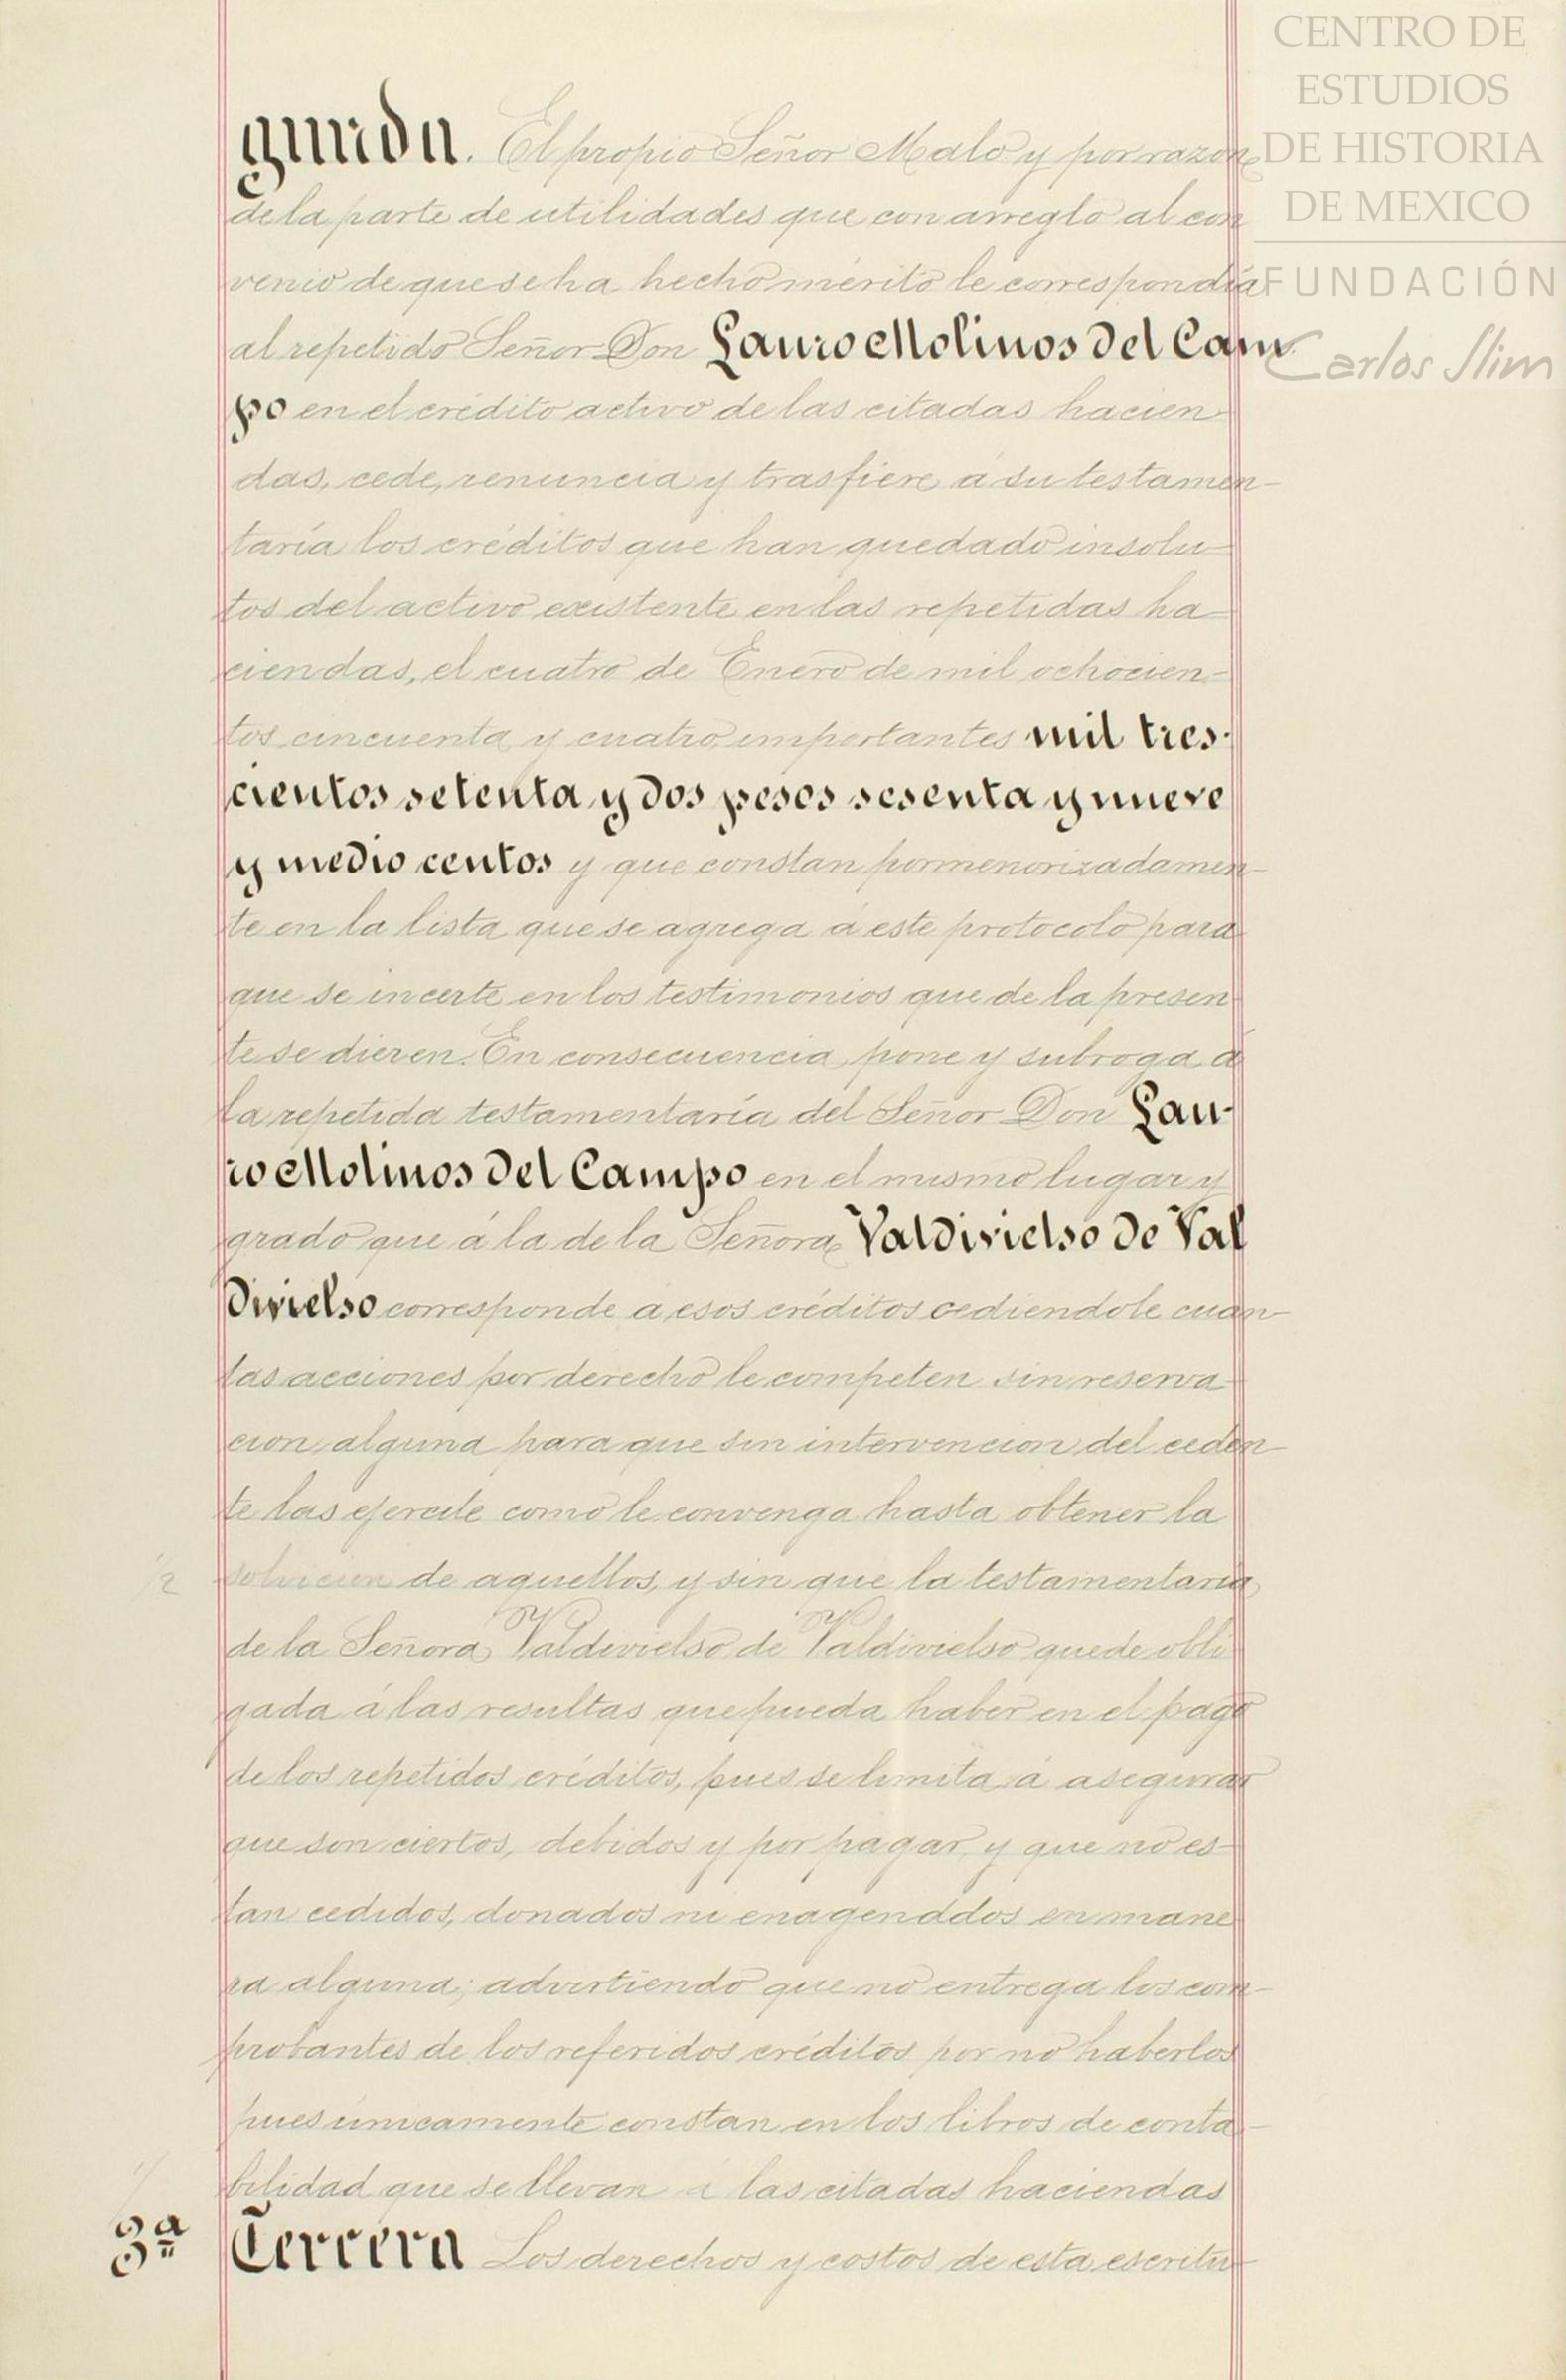 CENTRO DE
ESTUDIOS
DE HISTORIA
DE MEXICO
FUNDACIÓN
Carlos Slim
gunda. El propio Señor Malo y por razon
de la parte de utilidades que con arreglo al con
venio de que se ha hecho mérito le correspondía
al repetido Señor Don Lauro Molinos del Cam-
po en el crédito activo de las citadas hacien
das, cede, renuncia y trasfiere á su testamen-
taría los créditos que han quedado insolu-
tos del activo existente en las repetidas ha-
ciendas, el cuatro de Enero de mil ochocien-
tos cincuenta y cuatro, importantes mil tres-
cientos setenta y dos pesos sesenta y nueve
y medio centos y que constan pormenorizadamen-
te en la lista que se agrega á este protocolo para
que se incerte en los testimonios que de la presen
te se dieren. En consecuencia pone y subroga á
la repetida testamentaría del Señor Don Lau-
ro Molinos del Campo en el mismo lugar y
grado que á la de la Señora Valdivielso de Val
divielso corresponde á esos créditos cediendole cuan-
tas acciones por derecho le competen sin reserva-
cion alguna para que sin intervencion del ceden-
te las ejercite como le convenga hasta obtener la
1/2 solucion de aquellos, y sin que la testamentaria
de la Señora Valdivielso de Valdivielso quede obli
gada á las resultas que pueda haber en el pago
de los repetidos créditos, pues se limita á asegurar
que son ciertos, debidos y por pagar, y que no es-
tan cedidos, donados ni enagenddos en mane
ra alguna; advirtiendo que no entrega los com-
probantes de los referidos créditos por no haberlos
pues únicamente constan en los libros de conta-
bilidad que se llevan á las citadas haciendas
3ª Tercera Los derechos y costos de esta escritu-